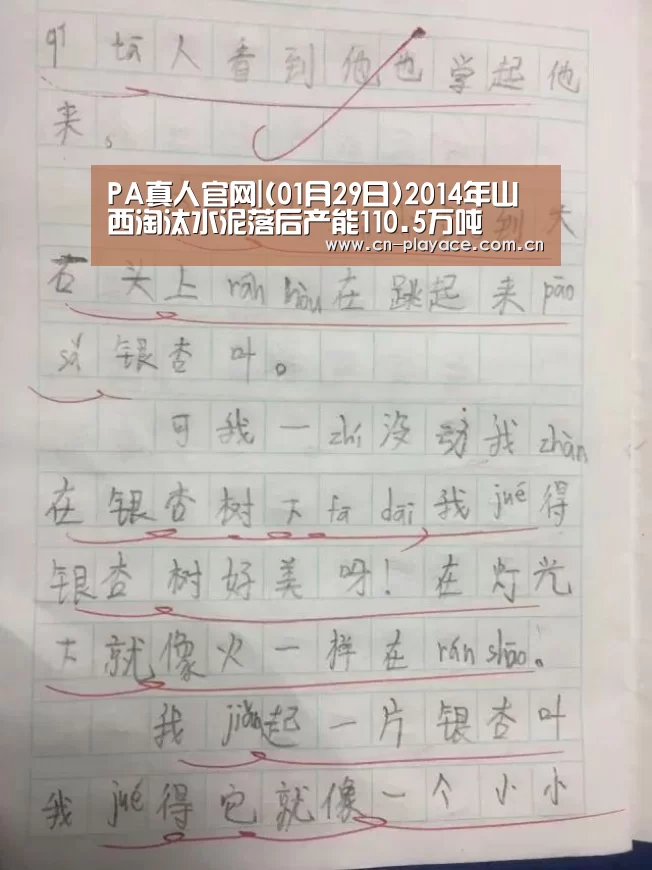 qí tā人看到他也学起他
来。
PA真人官网|(01月29日)2014年山
西淘汰水泥落后产能110.5万吨
www.cn-playace.com.cn
到大
石头上rán hòu在跳起来pāo
sǎ银杏叶。
可我一zhí没动我zhàn
在银杏树下fā dāi我jué得
银杏树好美呀！在灯光
下就像火一样在rán shāo。
我jiǎn起一片银杏叶
我jué得它就像一个小小